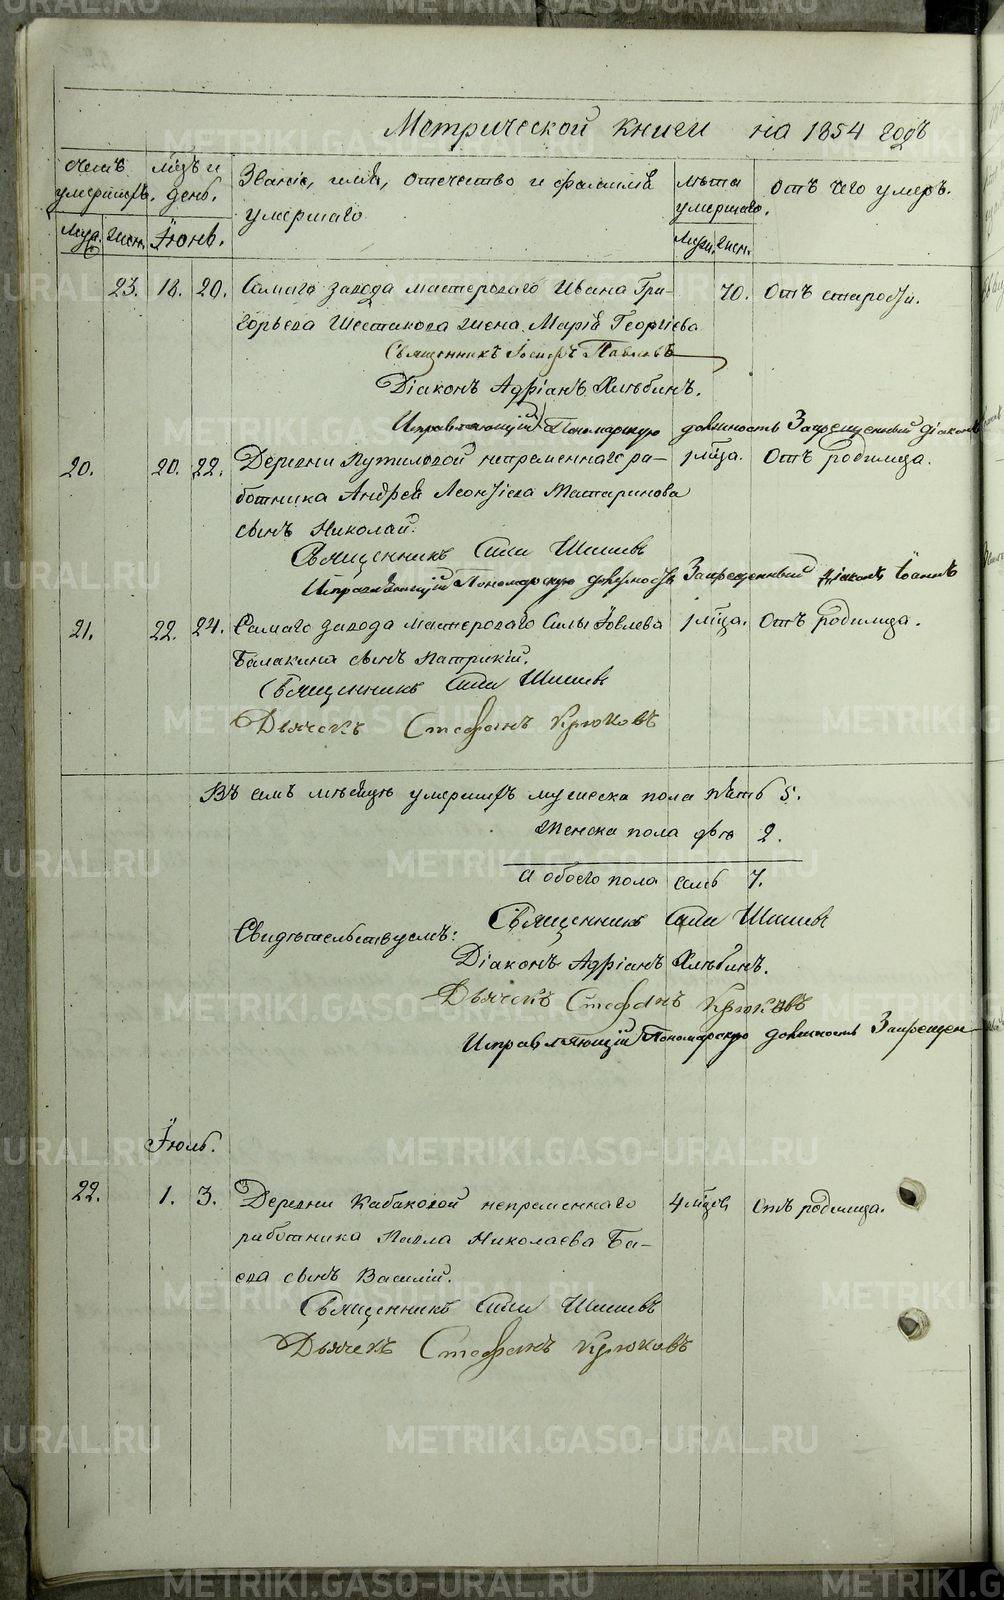 Метрической книги на 1854 годъ
Счетъ умершихъ. Мцъ и день. Званіе, имя, отечество и фамилія умершаго. Лѣта умершаго. Отъ чего умеръ.
Муж. Жен. Іюнь. Муж. Жен.
23. 18. 20. Самаго завода мастероваго Ивана Гри- 70. Отъ старости.
горьева Шестакова жена Марія Георгіева
Священникъ Іосифъ Павловъ
Діаконъ Адріанъ Хлѣбинъ.
Исправляющій Пономарскую должность Запрещенный діаконъ
20. 20. 22. Деревни Путиловой непременнаго ра- 1 мца. Отъ родимца.
ботника Андрея Леонтіева Татаринова
сынъ Николай.
Священникъ Сила Шишевъ
Исправляющій Пономарскую должность Запрещенный діаконъ Іоаннъ
21. 22. 24. Самаго завода мастероваго Силы Іовлева 1 мца. Отъ родимца.
Балакина сынъ Патрикій.
Священникъ Сила Шишевъ
Дьячекъ Стефанъ Крюковъ
Въ семъ мѣсяцѣ умершихъ мужеска пола пять 5.
Женска пола двѣ 2.
А обоего пола семь 7.
Свидѣтельствуемъ: Священникъ Сила Шишевъ
Діаконъ Адріанъ Хлѣбинъ.
Дьячекъ Стефанъ Крюковъ
Исправляющій Пономарскую должность Запрещен
Іюль.
22. 1. 3. Деревни Кабаковой непременнаго 4 мцев Отъ родимца.
работника Павла Николаева Ба-
ева сынъ Василій.
Священникъ Сила Шишевъ
Дьячекъ Стефанъ Крюковъ
METRIKI.GASO-URAL.RU